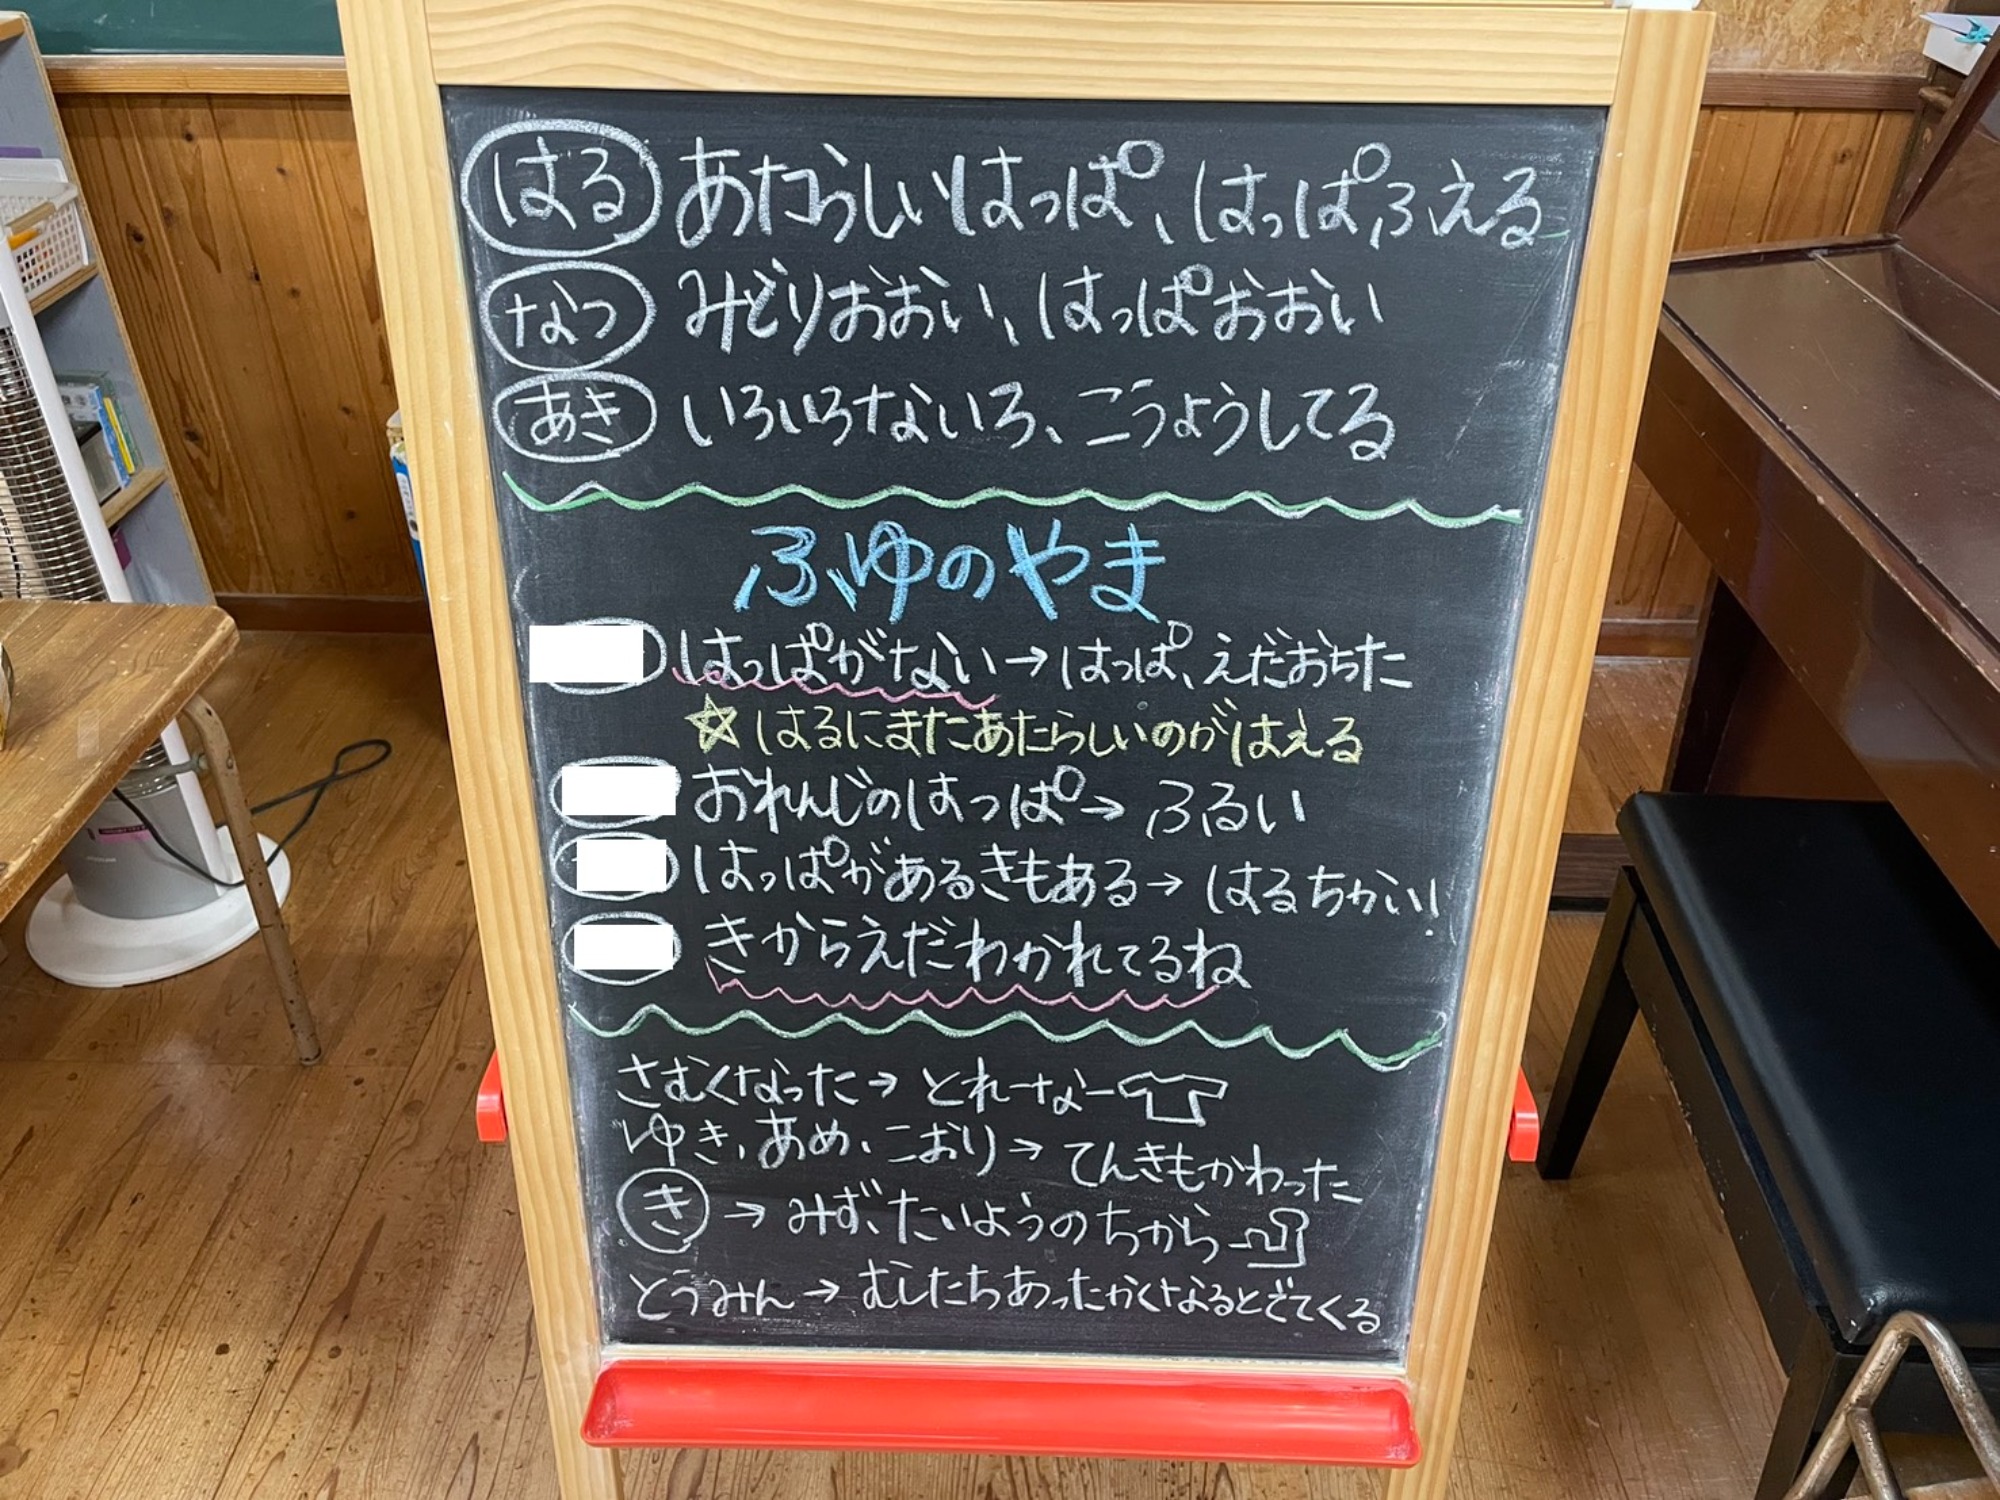 はる あたらしいはっぱ、はっぱふえる
なつ みどりおおい、はっぱおおい
あき いろいろないろ、こうようしてる
ふゆのやま
はっぱがない→はっぱ、えだおちた
☆はるにまたあたらしいのがはえる
おれんじのはっぱ→ふるい
はっぱがあるきもある→はるちかい!
きからえだわかれてるね
さむくなった→とれーなー
ゆき、あめ、こおり→てんきもかわった
き→みず、たいようのちから
とうみん→むしたちあったかくなるとでてくる